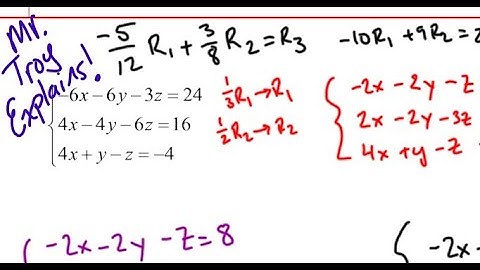 Mr.
Troy
Explains!
-5/12 R₁ + 3/8 R₂ = R₃
-10R₁ + 9R₂ = 2
-6x - 6y - 3z = 24
4x - 4y - 6z = 16
4x + y - z = -4
1/3 R₁ → R₁
1/2 R₂ → R₂
-2x - 2y - z
2x - 2y - 3z
4x + y - z
-2x - 2y - z = 8
-2x -